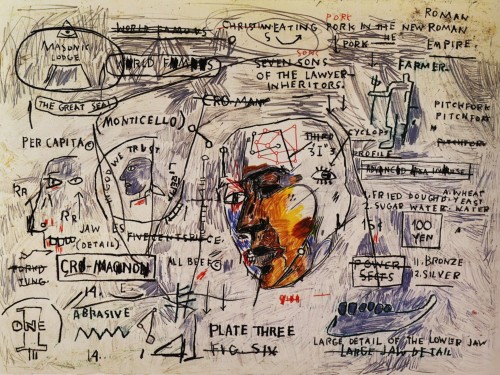 WORLD FAMOUS
MASONIC
LODGE
WORLD FAMOUS
THE GREAT SEAL
(MONTICELLO)
PER CAPITA
IN GOD WE TRUST
LIBERTY
RR
RR
JAW
(DETAIL)
5
FIVE CENT PIECE.
CRO-MAGNON
TUNG.
14.
E
ALL BEEF
ONE
ABRASIVE
14...
CHRISTIAN EATING
PORK
PORK IN THE NEW ROMAN
PORK THE
EMPIRE.
ROMAN
SONS
SEVEN SONS
OF THE LAWYER
INHERITORS.
CRO-MAN
FARMER.
PITCHFORK
PITCHFORK
PITCHFORK
THIRD
CYCLOPS
PROFILE
1. FRIED DOUGH
2. SUGAR WATER
A. WHEAT
YEAST
WATER
15¢
100
YEN
POWER
SEATS
11. BRONZE
2. SILVER
PLATE THREE
FIG. SIX
LARGE DETAIL OF THE LOWER JAW
LARGE JAW DETAIL